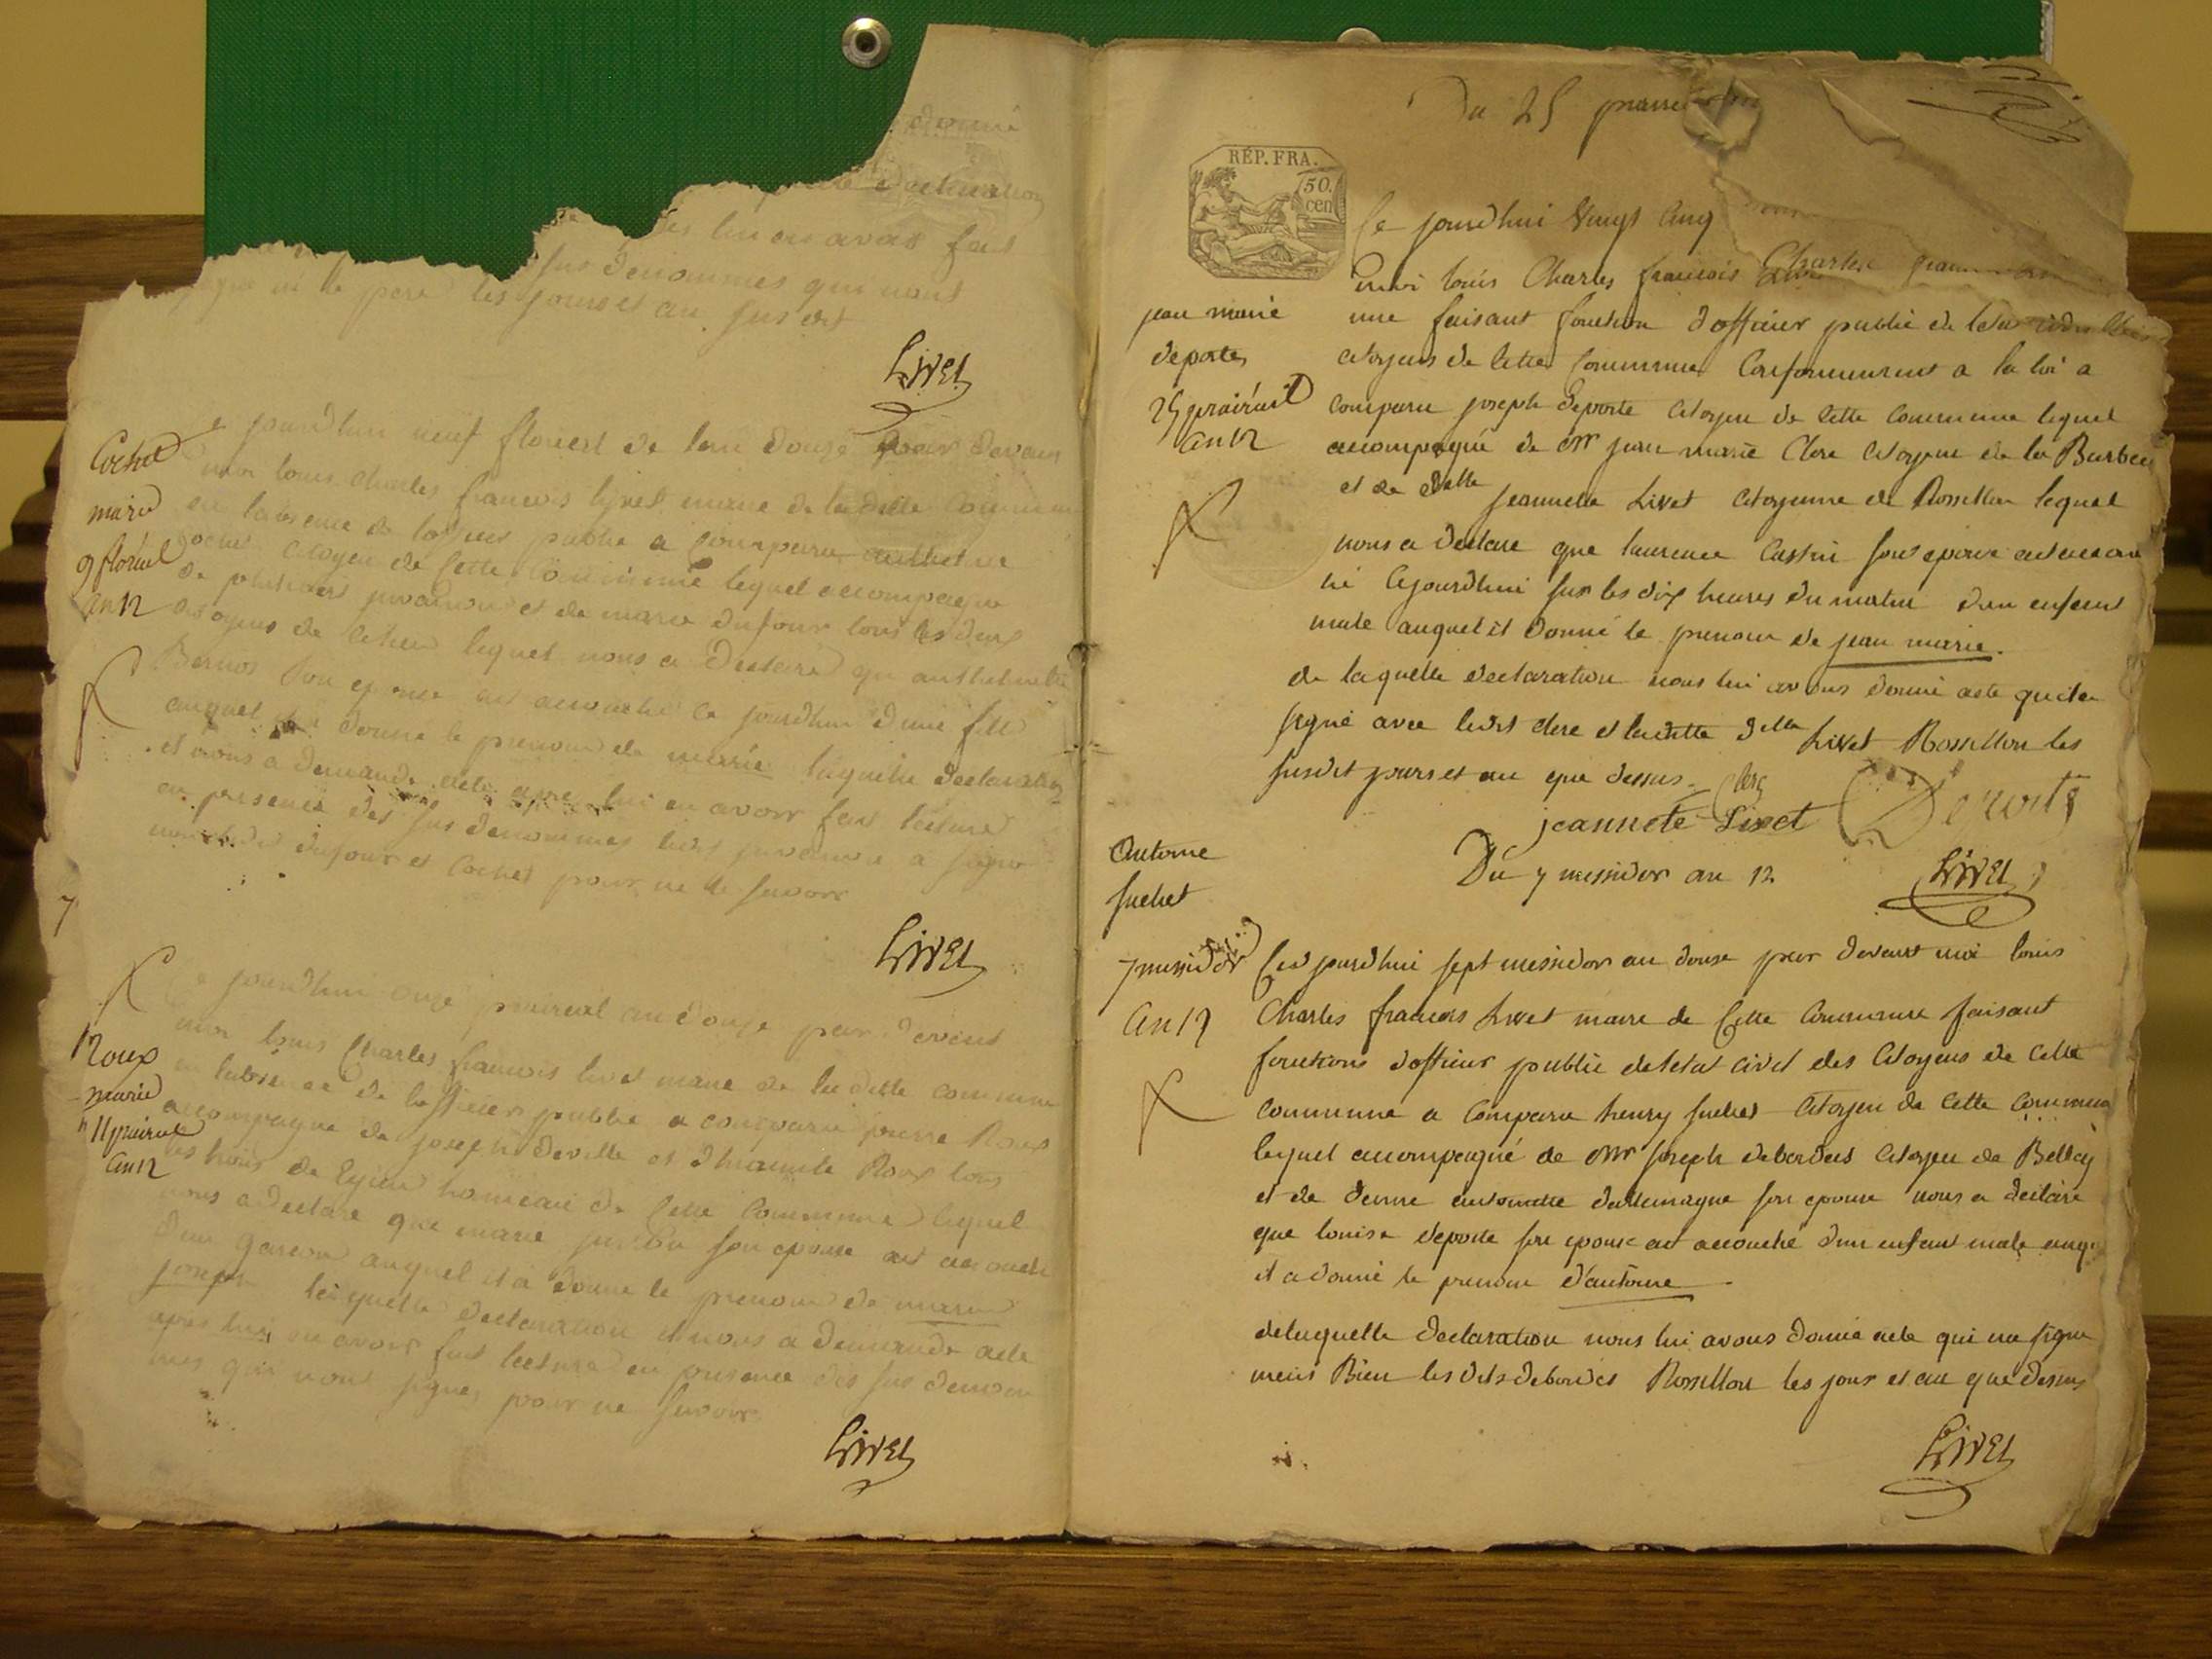 donné
declaration
lui en avoir fait
sus denommes qui n'ont
signé ni le pere les jours et an susdit
Livet
Cochet
marie
9 floréal
an 12
e jourd'hui neuf floreal de l'an douze par devan
moi louis charles francois livet maire de la ditte commune
en l'absence de l'officier public a comparu anthelme
cochet citoyen de cette commune lequel accompagné
de et de marie dufour tous les deux
citoyens de ce lieu lequel nous a declaré qu'anthelmette
Bernos son epouse est accouché ce jourd'hui d'une fille
auquel il a donné le prenom de marie laquelle declaration
et nous a demandé acte apres lui en avoir fait lecture
en presence des sus denommes a signé
non le dit dufour et cochet pour ne le savoir
Livet
7
Roux
marie
11 prairial
an 12
e jourd'hui onze prairial an douze par devant
moi louis Charles francois livet maire de la ditte commune
en l'absence de l'officier public a comparu pierre Roux
accompagné de joseph deville et Roux tous
les trois de hameau de cette commune lequel
nous a declaré que marie son epouse est accouché
d'un garcon auquel il a donné le prenom de marie
joseph laquelle declaration il nous a demandé acte
apres lui en avoir fait lecture en presence des sus denom
mes qui n'ont signes pour ne savoir
Livet
Du 25 prairial
RÉP. FRA.
50.
cen
Ce jourd'hui Vingt Cinq
moi louis Charles francois
jean marie
deporte
25 prairial
an 12
faisant fonction d'officier public de l'etat civil des
citoyens de cette Commune Conformement a la loi a
comparu joseph deporte citoyen de cette commune lequel
accompagné de mr jean marie Clerc citoyen de la Burbanche
et de delle jeannette Livet citoyenne de Rossillon lequel
nous a declaré que laurence Castin son epouse est accou
hé cejourd'hui sur les dix heures du matin d'un enfent
male auquel il donné le prenom de jean marie.
de laquelle declaration nous lui avons donné acte qu'il a
signé avec ledit clerc et laditte delle Livet Rossillon les
susdit jours et an que dessus.
Clerc
jeannete Livet Deporte
Livet
Antoine
suchet
7 messidor
an 12
Du 7 messidor an 12
Ced jourd'hui sept messidor an douze par devant moi louis
Charles francois Livet maire de Cette Commune faisant
fonctions d'officier public de l'etat civil des Citoyens de Cette
commune a Comparu henry suchet Citoyen de Cette commune
lequel accompagné de mr joseph debordes citoyen de Belley
et de dame antoinette dallemagne son epouse nous a declaré
que louise deporte son epouse est accouché d'un enfant male auq
il a donné le prenom d'antoine
de laquelle declaration nous lui avons donné acte qui n'a signé
mais Bien les dits debordes Rossillon les jour et an que dessus
Livet